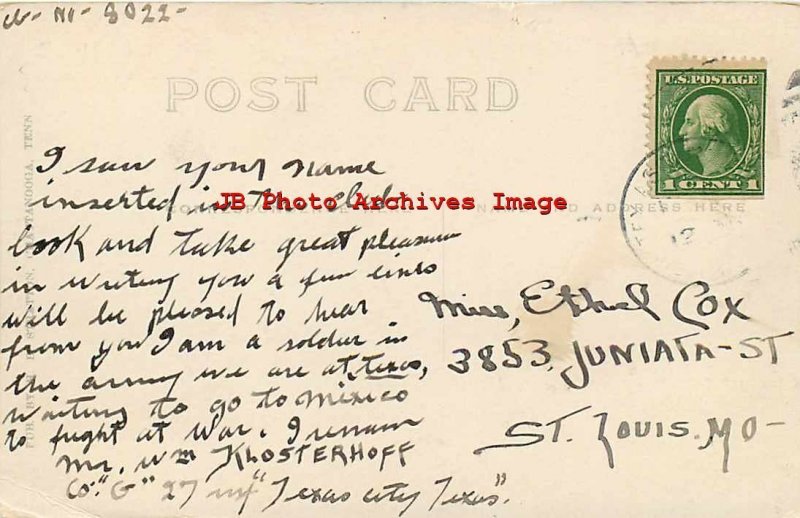 N-8022-
POST CARD
U.S. POSTAGE
1 CENT 1
I saw your name
inserted in the club
JB Photo Archives Image
NAME AND ADDRESS HERE
book and take great pleasure
in writing you a few lines
will be pleased to hear
from you I am a soldier in
the army we are at Texas,
waiting to go to Mexico
to fight at war. I remain
Mr. Wm KLOSTERHOFF
Co. "G" 27 inf "Texas city Texas".
Miss, Ethel Cox
3853 JUNIATA-ST
ST. LOUIS. MO-
TENN